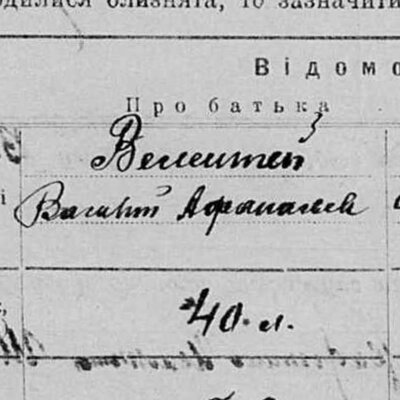 одилися близнята, то зазначити
Відомо
Про батька
Велентей
Василь Афанасьев
40 л.